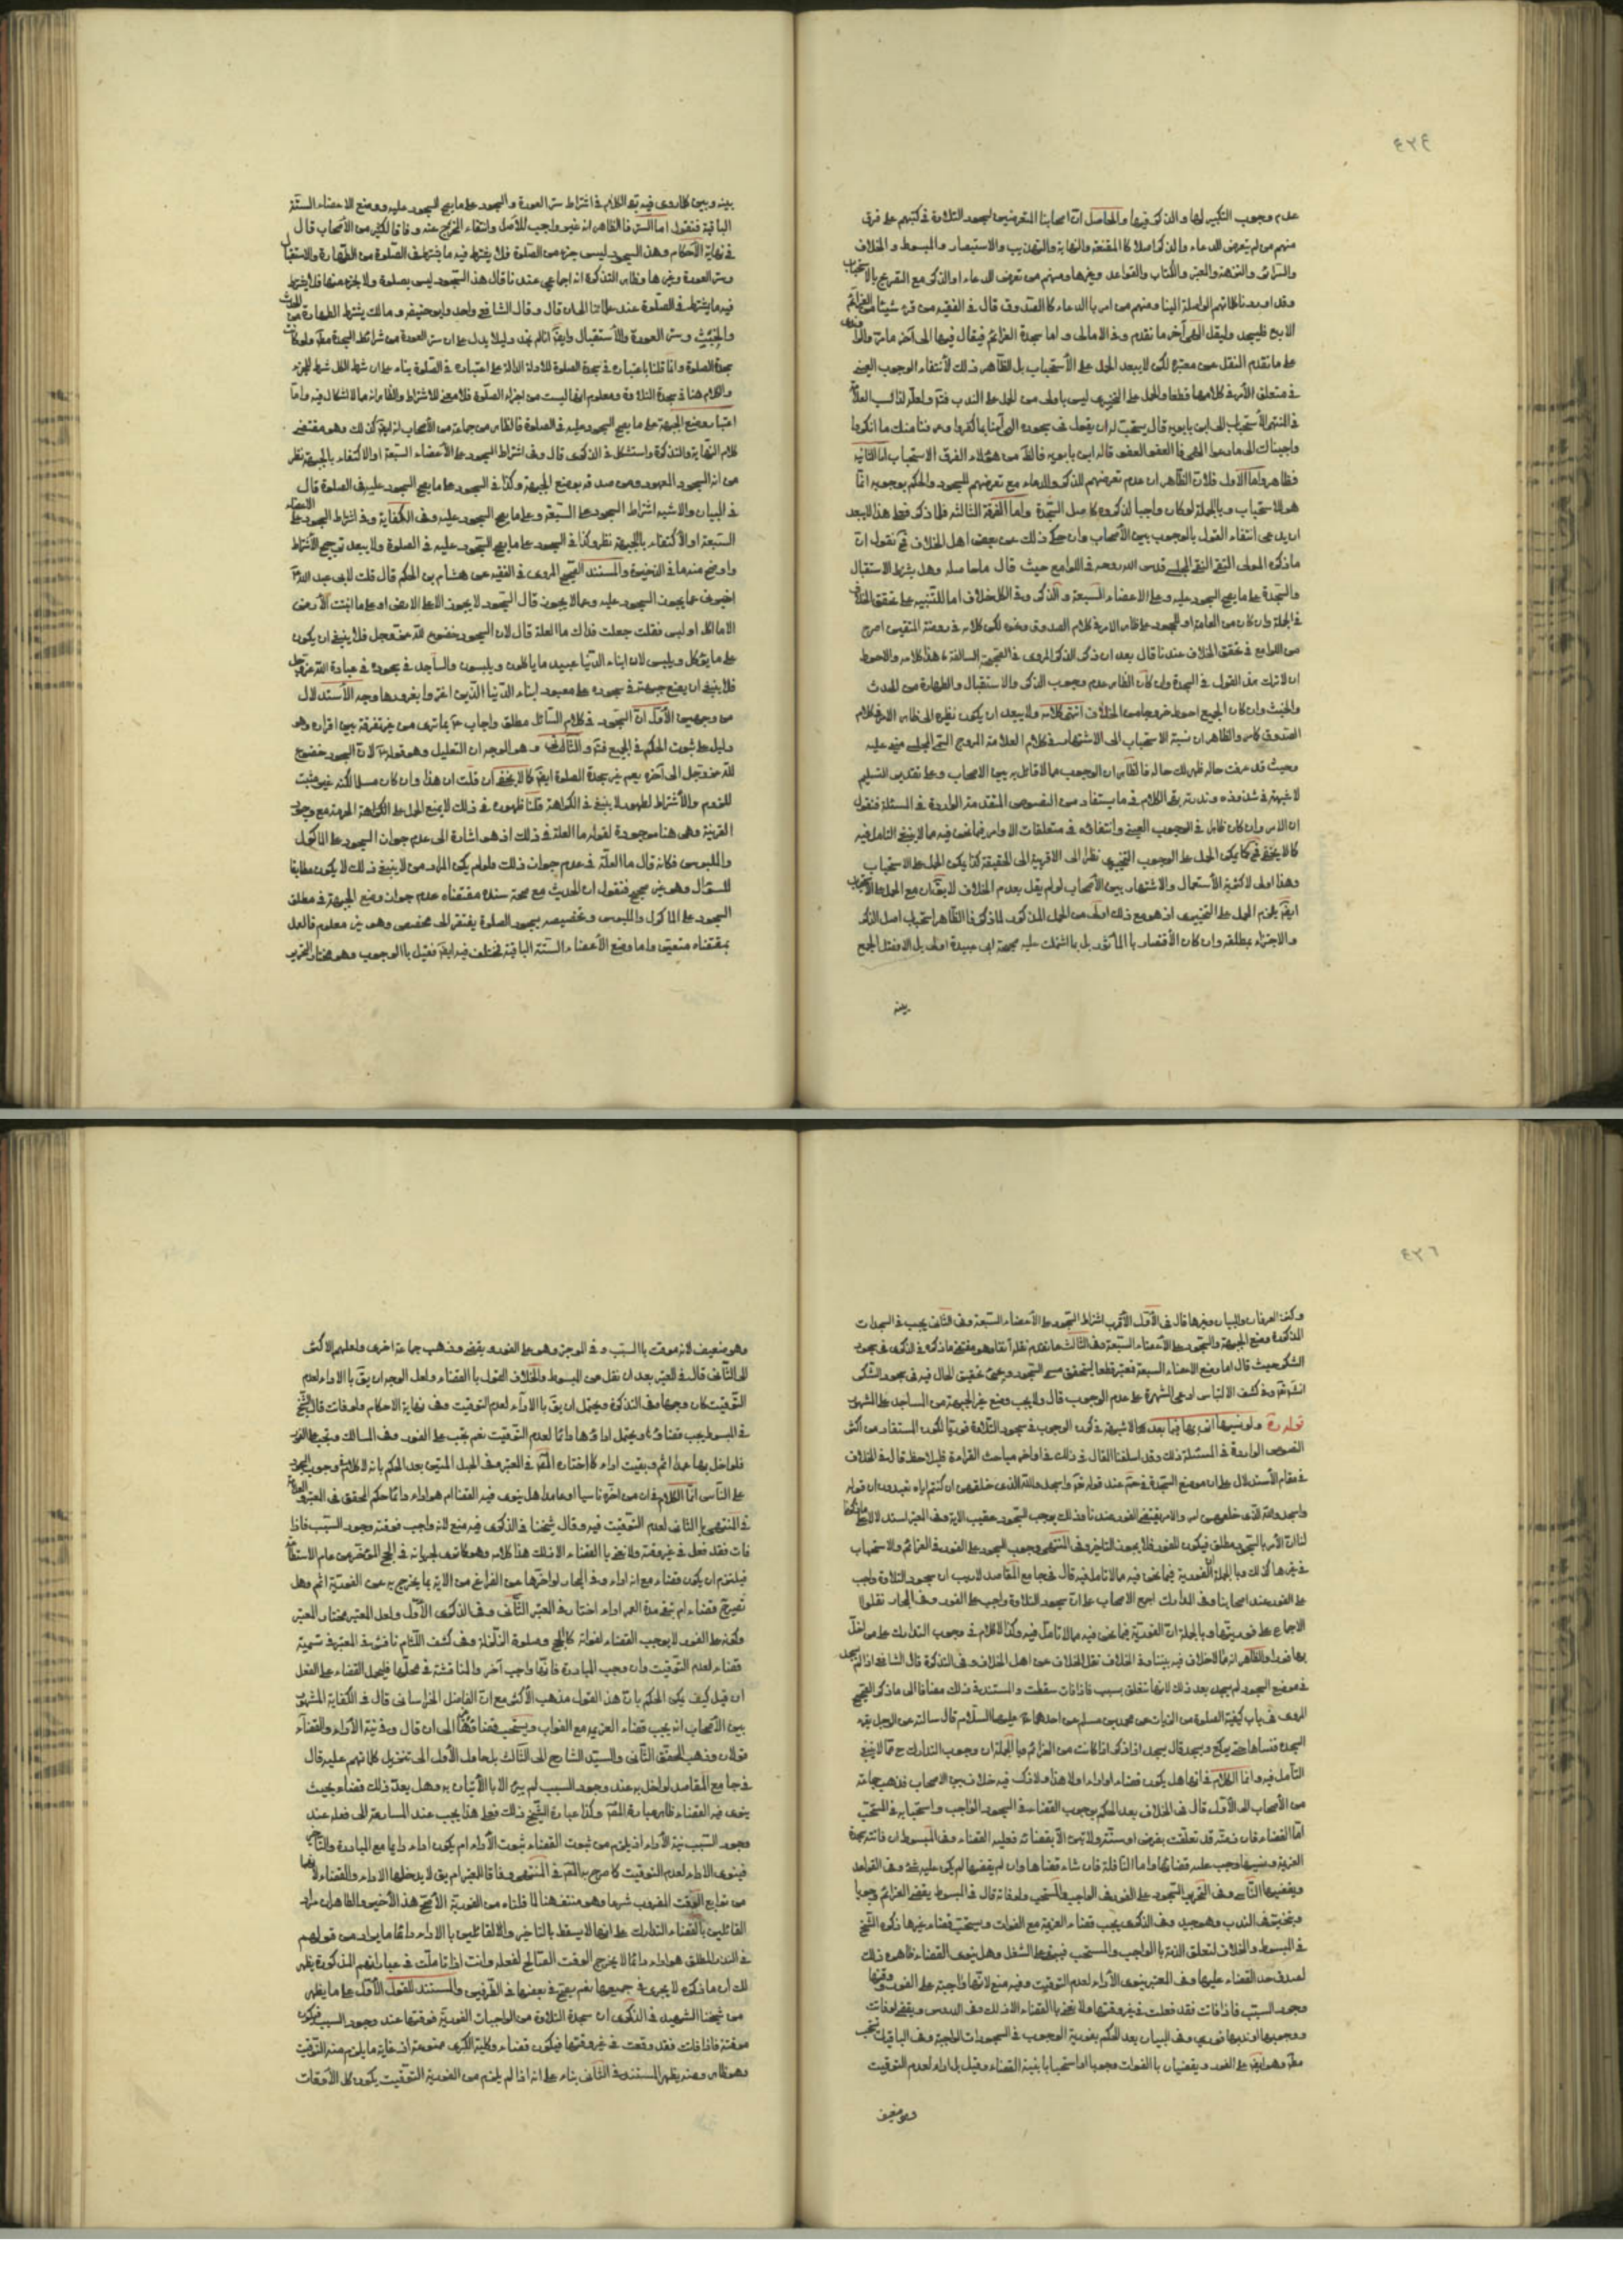 عدم وجوب التكبير لها والذكر فيها والحاصل ان اصحابنا المتعرضين لسجود التلاوة في كتبهم على فرق
منهم من لم يتعرض للدعاء والذكر اصلا كالمقنعة والنهاية والتهذيب والاستبصار والمبسوط والخلاف
والسرائر والنزهة والمعتبر والكتاب والقواعد وغيرها ومنهم من تعرض للدعاء او الذكر مع التصريح بالاستحباب
وقد اوردنا كلماتهم الواصلة الينا ومنهم من امر بالدعاء كالصدوق قال في الفقيه من قرء شيئا من العزائم
الاربع فليسجد وليقل الهي آخر ما تقدم وفي الامالي واما سجدة العزائم فيقال فيها الى آخر ما مر
على ما تقدم النقل عن معتبره لكن لا يبعد الحمل على الاستحباب بل الظاهر ذلك لانتفاء الوجوب العيني
في متعلق الامر في كلامهما قطعا والحمل على التخييري ليس باولى من الحمل على الندب
في المنتهى الاستحباب الى ابن بابويه قال يستحب ان يقول في سجوده الهي آمنا بما كفروا وعرفنا منك ما انكروا
واجبناك الى ما دعوا الهي فالعفو العفو قاله ابن بابويه
فظاهر واما الاول فلان الظاهر ان عدم تعرضهم للذكر والدعاء مع تعرضهم للسجود والحكم بوجوبه
هو الاستحباب وبالجملة لو كان واجبا لذكروه كاصل السجدة واما الفرقة الثالثة فلما ذكر فعلى هذا لا يبعد
ان يدعى انتفاء القول بالوجوب بين الاصحاب وان حكي ذلك عن بعض اهل الخلاف ثم نقول ان
ما ذكره المولى التقي النقي المجلسي قدس الله روحه في اللوامع حيث قال ما حاصله وهل يشترط الاستقبال
والسجدة على ما يصح السجود عليه وعلى الاعضاء السبعة والذكر وفي الكل خلاف اما للتنبيه على تحقق الخلاف
في الجملة وان كان من العامة او للجمود على ظاهر الامر في كلام الصدوق ونحوه لكن كلامه في روضة المتقين اصرح
من اللوامع في تحقق الخلاف عندنا قال بعد ان ذكر الذكر المروي في الصحيحة السالفة هذا كلامه والاحوط
ان لا يترك هذا القول في السجدة وان كان الظاهر عدم وجوب الذكر والاستقبال والطهارة من الحدث
والخبث وان كان الجميع احوط خروجا من الخلاف انتهى كلامه ولا يبعد ان يكون نظره الى ظاهر الامر في كلام
الصدوق كما مر والظاهر ان نسبة الاستحباب الى الاشتهار في كلام العلامة المروج التقي المجلسي مبني عليه
وحيث قد عرفت حاله ظهر لك حاله فالظاهر ان الوجوب مما لا قائل به بين الاصحاب وعلى تقدير التسليم
لا شبهة في شذوذه وندرته بقي الكلام في ما يستفاد من النصوص المتقدمة الواردة في المسئلة فنقول
ان الامر وان كان ظاهر في الوجوب العيني وانتفائه في متعلقات الاوامر فيما نحن فيه مما لا ينبغي التامل فيه
كما لا يخفى ثم كما يمكن الحمل على الوجوب التخييري نظرا الى الاقربية الى الحقيقة كذا يمكن الحمل على الاستحباب
وهذا اولى لاكثرية الاستعمال والاشتهار بين الاصحاب لو لم يقل بعدم الخلاف
ايضا يلزم الحمل على التخييري اذ هو مع ذلك اولى من الحمل المذكور لما ذكر فالظاهر استحباب اصل الذكر
والاجتزاء بمطلقه وان كان الاقتصار بالماثور بل بما اشتملت عليه صحيحة ابي عبيدة اولى بل الافضل الجمع
بينه
بينه وبين كلما روي فيه بقي الكلام في اشتراط ستر العورة والسجود على ما يصح السجود عليه ووضع الاعضاء الستة
الباقية فنقول اما الستر فالظاهر انه غير واجب للاصل وانتفاء المخرج عنه وفاقا لكثير من الاصحاب قال
في نهاية الاحكام وهذا السجود ليس جزء من الصلوة فلا يشترط فيه ما يشترط في الصلوة من الطهارة والاستقبال
وستر العورة وغيرها وظاهر التذكرة انه اجماعي عندنا قال هذا السجود ليس بصلوة ولا جزء منها فلا يشترط
فيه ما يشترط في الصلوة عند علمائنا الى ان قال وقال الشافعي واحمد وابو حنيفة ومالك يشترط الطهارة من الحدث
والخبث وستر العورة والاستقبال وايضا انا لم نجد دليلا يدل على ان ستر العورة من شرائط السجدة مطلقا ولو كانت
سجدة الصلوة وانما قلنا باعتباره في سجدة الصلوة للادلة الدالة على اعتباره في الصلوة بناء على ان شرط الكل شرط للجزء
والكلام هنا في سجدة التلاوة ومعلوم انها ليست من اجزاء الصلوة فلا معنى للاشتراط والظاهر انه مما لا اشكال فيه واما
اعتبار وضع الجبهة على ما يصح السجود عليه في الصلوة فالظاهر من جماعة من الاصحاب انه ايضا كذلك وهو مقتضى
كلام النهاية والتذكرة واستشكل في الذكرى قال وفي اشتراط السجود على الاعضاء السبعة او الاكتفاء بالجبهة نظر
من انه السجود المعهود ومن صدقه بوضع الجبهة وكذا في السجود على ما يصح السجود عليه في الصلوة قال
في البيان والاشبه اشتراط السجود على السبعة وعلى ما يصح السجود عليه وفي الكفاية وفي اشتراط السجود على الاعضاء
السبعة او الاكتفاء بالجبهة نظر وكذا في السجود على ما يصح السجود عليه في الصلوة ولا يبعد ترجيح الاشتراط
واوضح منه ما في الذخيرة والمستند الصحيح المروي في الفقيه عن هشام بن الحكم قال قلت لابي عبد الله
اخبرني عما يجوز السجود عليه وعما لا يجوز قال السجود لا يجوز الا على الارض او على ما انبتت الارض
الا ما اكل او لبس فقلت جعلت فداك ما العلة قال لان السجود خضوع لله عز وجل فلا ينبغي ان يكون
على ما يؤكل ويلبس لان ابناء الدنيا عبيد ما ياكلون ويلبسون والساجد في سجوده في عبادة الله عز وجل
فلا ينبغي ان يضع جبهته في سجوده على معبود ابناء الدنيا الذين اغتروا بغرورها وجه الاستدلال
من وجهين الاول ان السجود في كلام السائل مطلق واجاب كما ترى من غير تفرقة بين افراده وهو
دليل على ثبوت الحكم في الجميع فتم والثاني وهو الوجه ان التعليل وهو قوله لان السجود خضوع
لله عز وجل الى آخره يعم غير سجدة الصلوة ايضا كما لا يخفى ان قلت ان هذا وان كان مسلما لكنه غير مثبت
للزوم والاشتراط لظهور لا ينبغي في الكراهة قلنا ظهوره في ذلك لا يمنع الحمل على الكراهة المحرمة مع وجود
القرينة وهي هنا موجودة لقوله ما العلة في ذلك اذ هو اشارة الى عدم جواز السجود على الماكول
والملبوس فكانه قال ما العلة في عدم جواز ذلك فلو لم يكن المراد من لا ينبغي ذلك لا يكون مطابقا
للسؤال وهو غير صحيح فنقول ان الحديث مع صحة سنده مقتضاه عدم جواز وضع الجبهة في مطلق
السجود على الماكول والملبوس وتخصيصه بسجود الصلوة يفتقر الى مخصص وهو غير معلوم فالعمل
بمقتضاه متعين واما وضع الاعضاء الستة الباقية فمختلف فيه ايضا فقيل بالوجوب وهو مختار التحرير
وكنز العرفان والبيان وغيرها قال في الاول الاقرب اشتراط السجود على الاعضاء السبعة وفي الثاني يجب في السجدات
المذكورة وضع الجبهة والسجود على الاعضاء السبعة وفي الثالث ما تقدم نقله آنفا وهو مقتضى ما ذكره في الذكرى في سجود
الشكر حيث قال اما وضع الاعضاء السبعة فمعتبر قطعا ليتحقق مسمى السجود ويجيء تحقيق الحال فيه في سجود الشكر
وفي كشف الالتباس ادعى الشهرة على عدم الوجوب قال ولا يجب وضع غير الجبهة من المساجد على المشهور
قوله ره ولو نسيها اتى بها فيما بعد مما لا شبهة في كون الوجوب في سجود التلاوة فوريا لكونه المستفاد من اكثر
النصوص الواردة في المسئلة ذلك وقد اسلفنا المقال في ذلك في اواخر مباحث القراءة فليلاحظ قال في الخلاف
في مقام الاستدلال على ان موضع السجدة في حم عند قوله واسجدوا لله الذي خلقهن ان كنتم اياه تعبدون ان قوله
واسجدوا لله الذي خلقهن امر والامر يقتضي الفور عندنا وذلك يوجب السجود عقيب الاية وفي المعتبر
لنا ان الامر بالسجود مطلق فيكون للفور فلا يجوز التاخير وفي المنتهى وجوب السجود على الفور في العزائم والاستحباب
في غيرها كذلك وبالجملة الفورية فيما نحن فيه مما لا تامل فيه قال في جامع المقاصد لا ريب ان سجود التلاوة واجب
على الفور عند اصحابنا وفي المدارك اجمع الاصحاب على ان سجود التلاوة واجب على الفور وفي البحار نقلوا
الاجماع على فوريتها وبالجملة ان الفورية فيما نحن فيه مما لا تامل فيه وكذا لا كلام في وجوب التدارك على من اخل
بها فورا والظاهر انه مما لا خلاف فيه بيننا وفي الخلاف نقل الخلاف عن اهل الخلاف وفي التذكرة قال الشافعي اذا لم يسجد
في موضع السجود لم يسجد بعد ذلك لانها تتعلق بسبب فاذا فات سقطت والمستند في ذلك مضافا الى ما ذكر الصحيح
المروي في باب كيفية الصلوة من الزيادات عن محمد بن مسلم عن احدهما عليهما السلام قال سالته عن الرجل يقرء
السجدة فينساها حتى يركع ويسجد قال يسجد اذا ذكر اذا كانت من العزائم وبالجملة ان وجوب التدارك ح مما لا ينبغي
التامل فيه وانما الكلام في انها هل يكون قضاء او اداء او لا هذا ولا ذاك فيه خلاف بين الاصحاب فذهب جماعة
من الاصحاب الى الاول قال في الخلاف بعد الحكم بوجوب القضاء في السجود الواجب واستحبابه في المستحب
اما القضاء فان ذمته قد تعلقت بفرض او سنة ولا تبرئ الا بقضائه فعليه القضاء وفي المبسوط ان فاتته سجدة
العزيمة ونسيها وجب عليه قضائها واما النافلة فان شاء قضاها وان لم يقضها لم يكن عليه شئ وفي القواعد
ويقضيها الناسي وفي التحرير السجود على الفور في الواجب والمستحب ولو فات قال في المبسوط يقضي العزائم وجوبا
ويستحب في الندب وهو جيد وفي الذكرى يجب قضاء العزيمة مع الفوات ويستحب قضاء غيرها ذكره الشيخ
في المبسوط والخلاف لتعلق الذمة بالواجب والمستحب فيبقى على الشغل وهل ينوى القضاء ظاهره ذلك
لصدق حد القضاء عليها وفي المعتبر ينوى الاداء لعدم التوقيت وفيه منع لانها واجبة على الفور فوقتها
وجود السبب فاذا فات فقد فعلت في غير وقتها ولا نعني بالقضاء الا ذلك وفي الدروس ويقضى لو فات
ووجوبها او ندبها فوري وفي البيان بعد الحكم بفورية الوجوب في السجودات الواجبة وفي الباقيات يستحب
مطلقا وهو ايضا على الفور ويقضيان بالفوات وجوبا او استحبابا بنية القضاء وقيل بل اداء لعدم التوقيت
وهو ضعيف
وهو ضعيف لانه موقت بالسبب وفي الموجز وهو على الفور ويقضى وذهب جماعة اخرى ولعلهم الاكثر
الى الثاني قال في المعتبر بعد ان نقل عن المبسوط والخلاف القول بالقضاء ولعل الوجه ان يقال بالاداء لعدم
التوقيت كان وجها وفي التذكرة ويحتمل ان يقال بالاداء لعدم التوقيت وفي نهاية الاحكام ولو فات قال الشيخ
في المبسوط يجب قضاؤه ويحتمل اداؤها دائما لعدم التوقيت نعم يجب على الفور وفي المسالك ويجب على الفور
فلو اخل بها عمدا اثم وبقيت اداء كما اختاره المصنف في المعتبر وفي الحبل المتين بعد الحكم بانه لا كلام في وجوب السجود
على الناسي انما الكلام في ان من اخره ناسيا او عامدا هل ينوى فيه القضاء ام هو اداء دائما حكم المحقق في المعتبر والعلامة
في المنتهى بالثاني لعدم التوقيت فيه وقال شيخنا في الذكرى فيه منع لانه واجب فوقته وجود السبب فاذا
فات فقد فعل في غير وقته ولا نعني بالقضاء الا ذلك هذا كلامه وهو كما ترى لجريانه في الحج المؤخر من عام الاستطاعة
فيلزم ان يكون قضاء مع انه اداء وفي البحار لو اخرها عن الفراغ من الاية بما يخرج به عن الفورية اثم وهل
تصير ح قضاء ام تبقى مدة العمر اداء اختار في المعتبر الثاني وفي الذكرى الاول ولعل المعتبر مختار المعتبر
وكونه على الفور لا يوجب القضاء لفواته كالحج وصلوة الزلزلة وفي كشف اللثام ناقش في المعتبر في تسمية
قضاء لعدم التوقيت وان وجب المبادرة فانها واجب آخر والمناقشة في محلها فليحمل القضاء على الفعل
ان قيل كيف يمكن الحكم بان هذا القول مذهب الاكثر مع ان الفاضل الخراساني قال في الكفاية المشهور
بين الاصحاب انه يجب قضاء العزيمة مع الفوات ويستحب قضاء غيرها الى ان قال وفي نية الاداء والقضاء
قولان وذهب المحقق الثاني والسيد الشارح الى الثالث بل حاول الاول الى تنزيل كلماتهم عليه قال
في جامع المقاصد لو اخل به عند وجود السبب لم يبرئ الا بالاتيان به وهل يعد ذلك قضاء بحيث
ينوى فيه القضاء ظاهر عبارة المصنف وكذا عبارة الشيخ ذلك فعلى هذا يجب عند المسارعة الى فعله عند
وجود السبب نية الاداء اذ يلزم من ثبوت القضاء ثبوت الاداء ام يكون اداء دائما مع المبادرة والتاخير
فينوى الاداء لعدم التوقيت كما صرح به المصنف في المنتهى وفاقا للمعتبر ام يقال لا يدخلها الاداء والقضاء لانهما
من توابع الوقت المضروب شرعا وهو منتف هنا لما قلناه من الفورية الاصح هذا الاخير والظاهر ان مراد
القائلين بالقضاء التدارك على انها لا يسقط بالتاخير والا لقائلين بالاداء دائما ما يراد من قولهم
في النذر المطلق هو اداء دائما لا يخرج الوقت الصالح لفعله وانت اذا تاملت في عباراتهم المذكورة يظهر
لك ان ما ذكره لا يجري في جميعها نعم يصح في بعضها في الطرفين والمستند للقول الاول على ما يظهر
من شيخنا الشهيد في الذكرى ان سجدة التلاوة من الواجبات الفورية فوقتها عند وجود السبب فيكون
موقتة فاذا فات فقد وقعت في غير وقتها فيكون قضاء وكلية الكبرى ممنوعة اذ غاية ما يلزم منه التوقيت
وهو ظاهر ومنه يظهر المستند في الثاني بناء على انه اذا لم يلزم من الفورية التوقيت يكون كل الاوقات